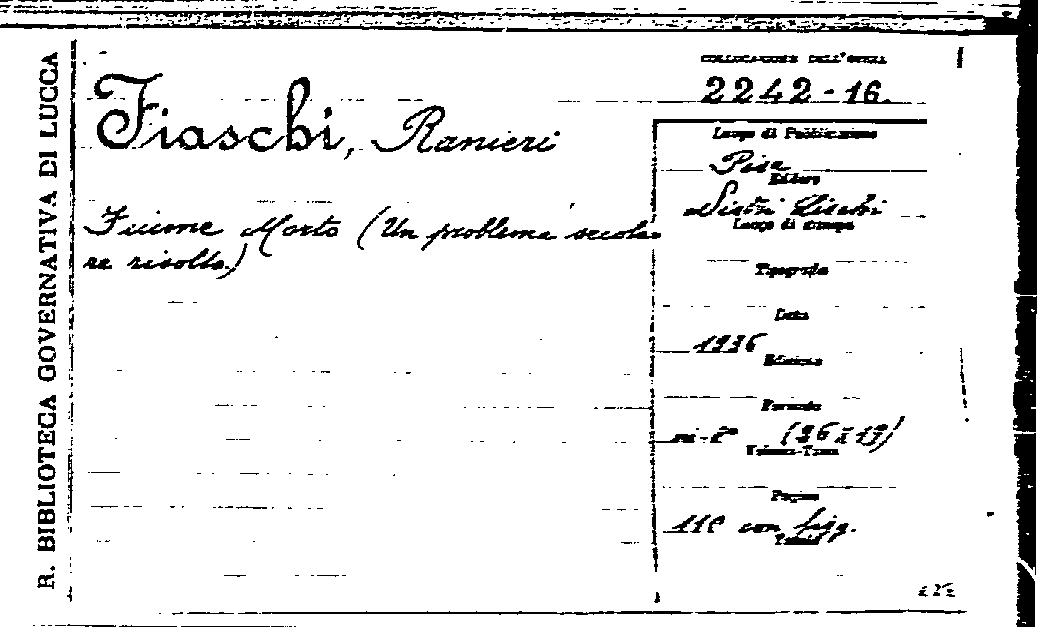 R. BIBLIOTECA GOVERNATIVA DI LUCCA
COLLOCAZIONE DELL'OPERA
2242-16.
Fiaschi, Ranieri
Fiume Morto (Un problema secola-
re risolto.)
Luogo di Pubblicazione
Pisa
Editore
Nistri Lischi
Luogo di stampa
Tipografia
Data
1936
Edizione
Formato
in-8° (26x19)
Volume-Tomo
Pagine
110 con figg.